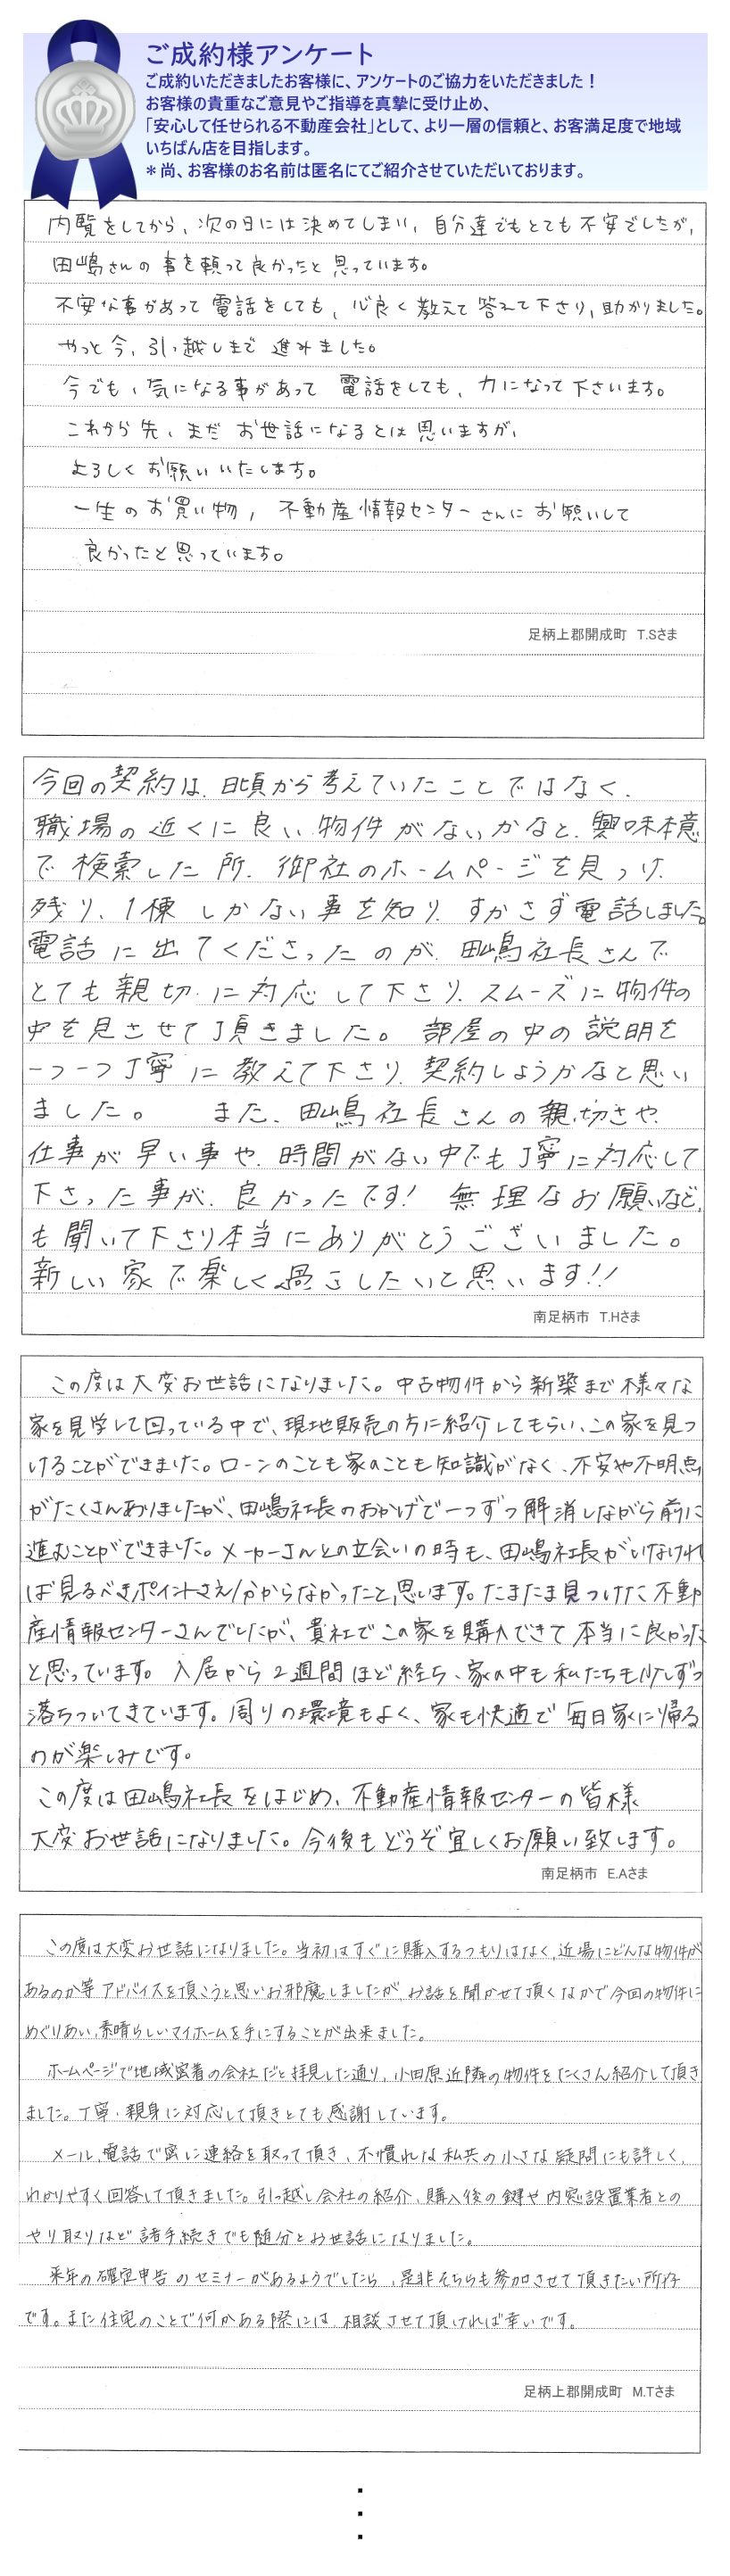 ご成約様アンケート
ご成約いただきましたお客様に、アンケートのご協力をいただきました！
お客様の貴重なご意見やご指導を真摯に受け止め、
「安心して任せられる不動産会社」として、より一層の信頼と、お客満足度で地域
いちばん店を目指します。
＊尚、お客様のお名前は匿名にてご紹介させていただいております。
内覧をしてから、次の日には決めてしまい、自分達でもとても不安でしたが、
田嶋さんの事を頼って良かったと思っています。
不安な事があって電話をしても、心良く教えて答えて下さり、助かりました。
やっと今、引っ越しまで進みました。
今でも、気になる事があって電話をしても、力になって下さいます。
これから先、まだお世話になるとは思いますが、
よろしくお願いいたします。
一生のお買い物、不動産情報センターさんにお願いして
良かったと思っています。
足柄上郡開成町 T.Sさま
今回の契約は、日頃から考えていたことではなく、
職場の近くに良い物件がないかなと、興味本意
で検索した所、御社のホームページを見つけ、
残り、1棟しかない事を知り、すかさず電話しました。
電話に出てくださったのが、田嶋社長さんで
とても親切に対応して下さり、スムーズに物件の
中を見させて頂きました。部屋の中の説明を
一つ一つ丁寧に教えて下さり、契約しようかなと思い
ました。 また、田嶋社長さんの親切さや、
仕事が早い事や、時間がない中でも丁寧に対応して
下さった事が、良かったです! 無理なお願いなど、
も聞いて下さり本当にありがとうございました。
新しい家で楽しく過ごしたいと思います!!
南足柄市 T.Hさま
この度は大変お世話になりました。中古物件から新築まで様々な
家を見学して回っている中で、現地販売の方に紹介してもらい、この家を見つ
けることができました。ローンのことも家のことも知識がなく、不安や不明点
がたくさんありましたが、田嶋社長のおかげで一つずつ解消しながら前に
進むことができました。メーカーさんとの立会いの時も、田嶋社長がいなけれ
ば見るべきポイントさえ分からなかったと思います。たまたま見つけた不動
産情報センターさんでしたが、貴社でこの家を購入できて本当に良かった
と思っています。入居から2週間ほど経ち、家の中も私たちも少しずつ
落ちついてきています。周りの環境もよく、家も快適で毎日家に帰る
のが楽しみです。
この度は田嶋社長をはじめ、不動産情報センターの皆様
大変お世話になりました。今後もどうぞ宜しくお願い致します。
南足柄市 E.Aさま
この度は大変お世話になりました。当初はすぐに購入するつもりはなく、近場にどんな物件が
あるのか等アドバイスを頂こうと思いお邪魔しましたが、お話を聞かせて頂くなかで今回の物件に
めぐりあい、素晴らしいマイホームを手にすることが出来ました。
ホームページで地域密着の会社だと拝見した通り、小田原近隣の物件をたくさん紹介して頂き
ました。丁寧、親身に対応して頂きとても感謝しています。
メール、電話で密に連絡を取って頂き、不慣れな私共の小さな疑問にも詳しく、
わかりやすく回答して頂きました。引っ越し会社の紹介、購入後の鍵や内窓設置業者との
やり取りなど諸手続きでも随分とお世話になりました。
来年の確定申告のセミナーがあるようでしたら、是非そちらも参加させて頂きたい所存
です。また住宅のことで何かある際には、相談させて頂ければ幸いです。
足柄上郡開成町 M.Tさま